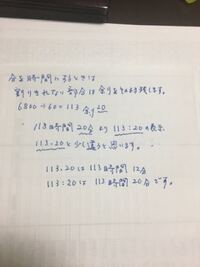 分を時間に直すときは
割りきれない部分は余りをそのまま残します。
6800÷60=113 余り20
113時間20分 より 113:20の表示
113.20と少し違うと思います。
113.20は 113時間 12分
113:20は 113時間 20分です。